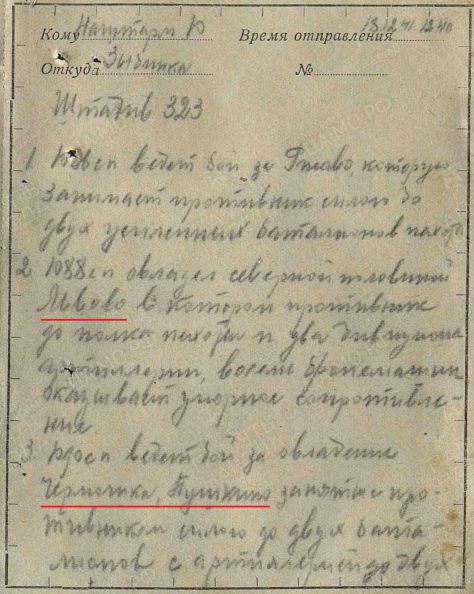 Кому Начштарм 10 Время отправления 18.12.41 12.40
Откуда Зыбинка №
Штадив 323
1. 1086 сп ведет бой за которую
занимает противник силою до
двух усиленных батальонов пехоты
2. 1088 сп овладел северной половиной
Львово в котором противник
до полка пехоты и два дивизиона
артиллерии, восемь бронемашин
оказывает упорное сопротивле-
ние
3. ведет бой за овладение
Чермошка, Пушкино занятые про-
тивником силою до двух бата-
льонов с артиллерией до двух